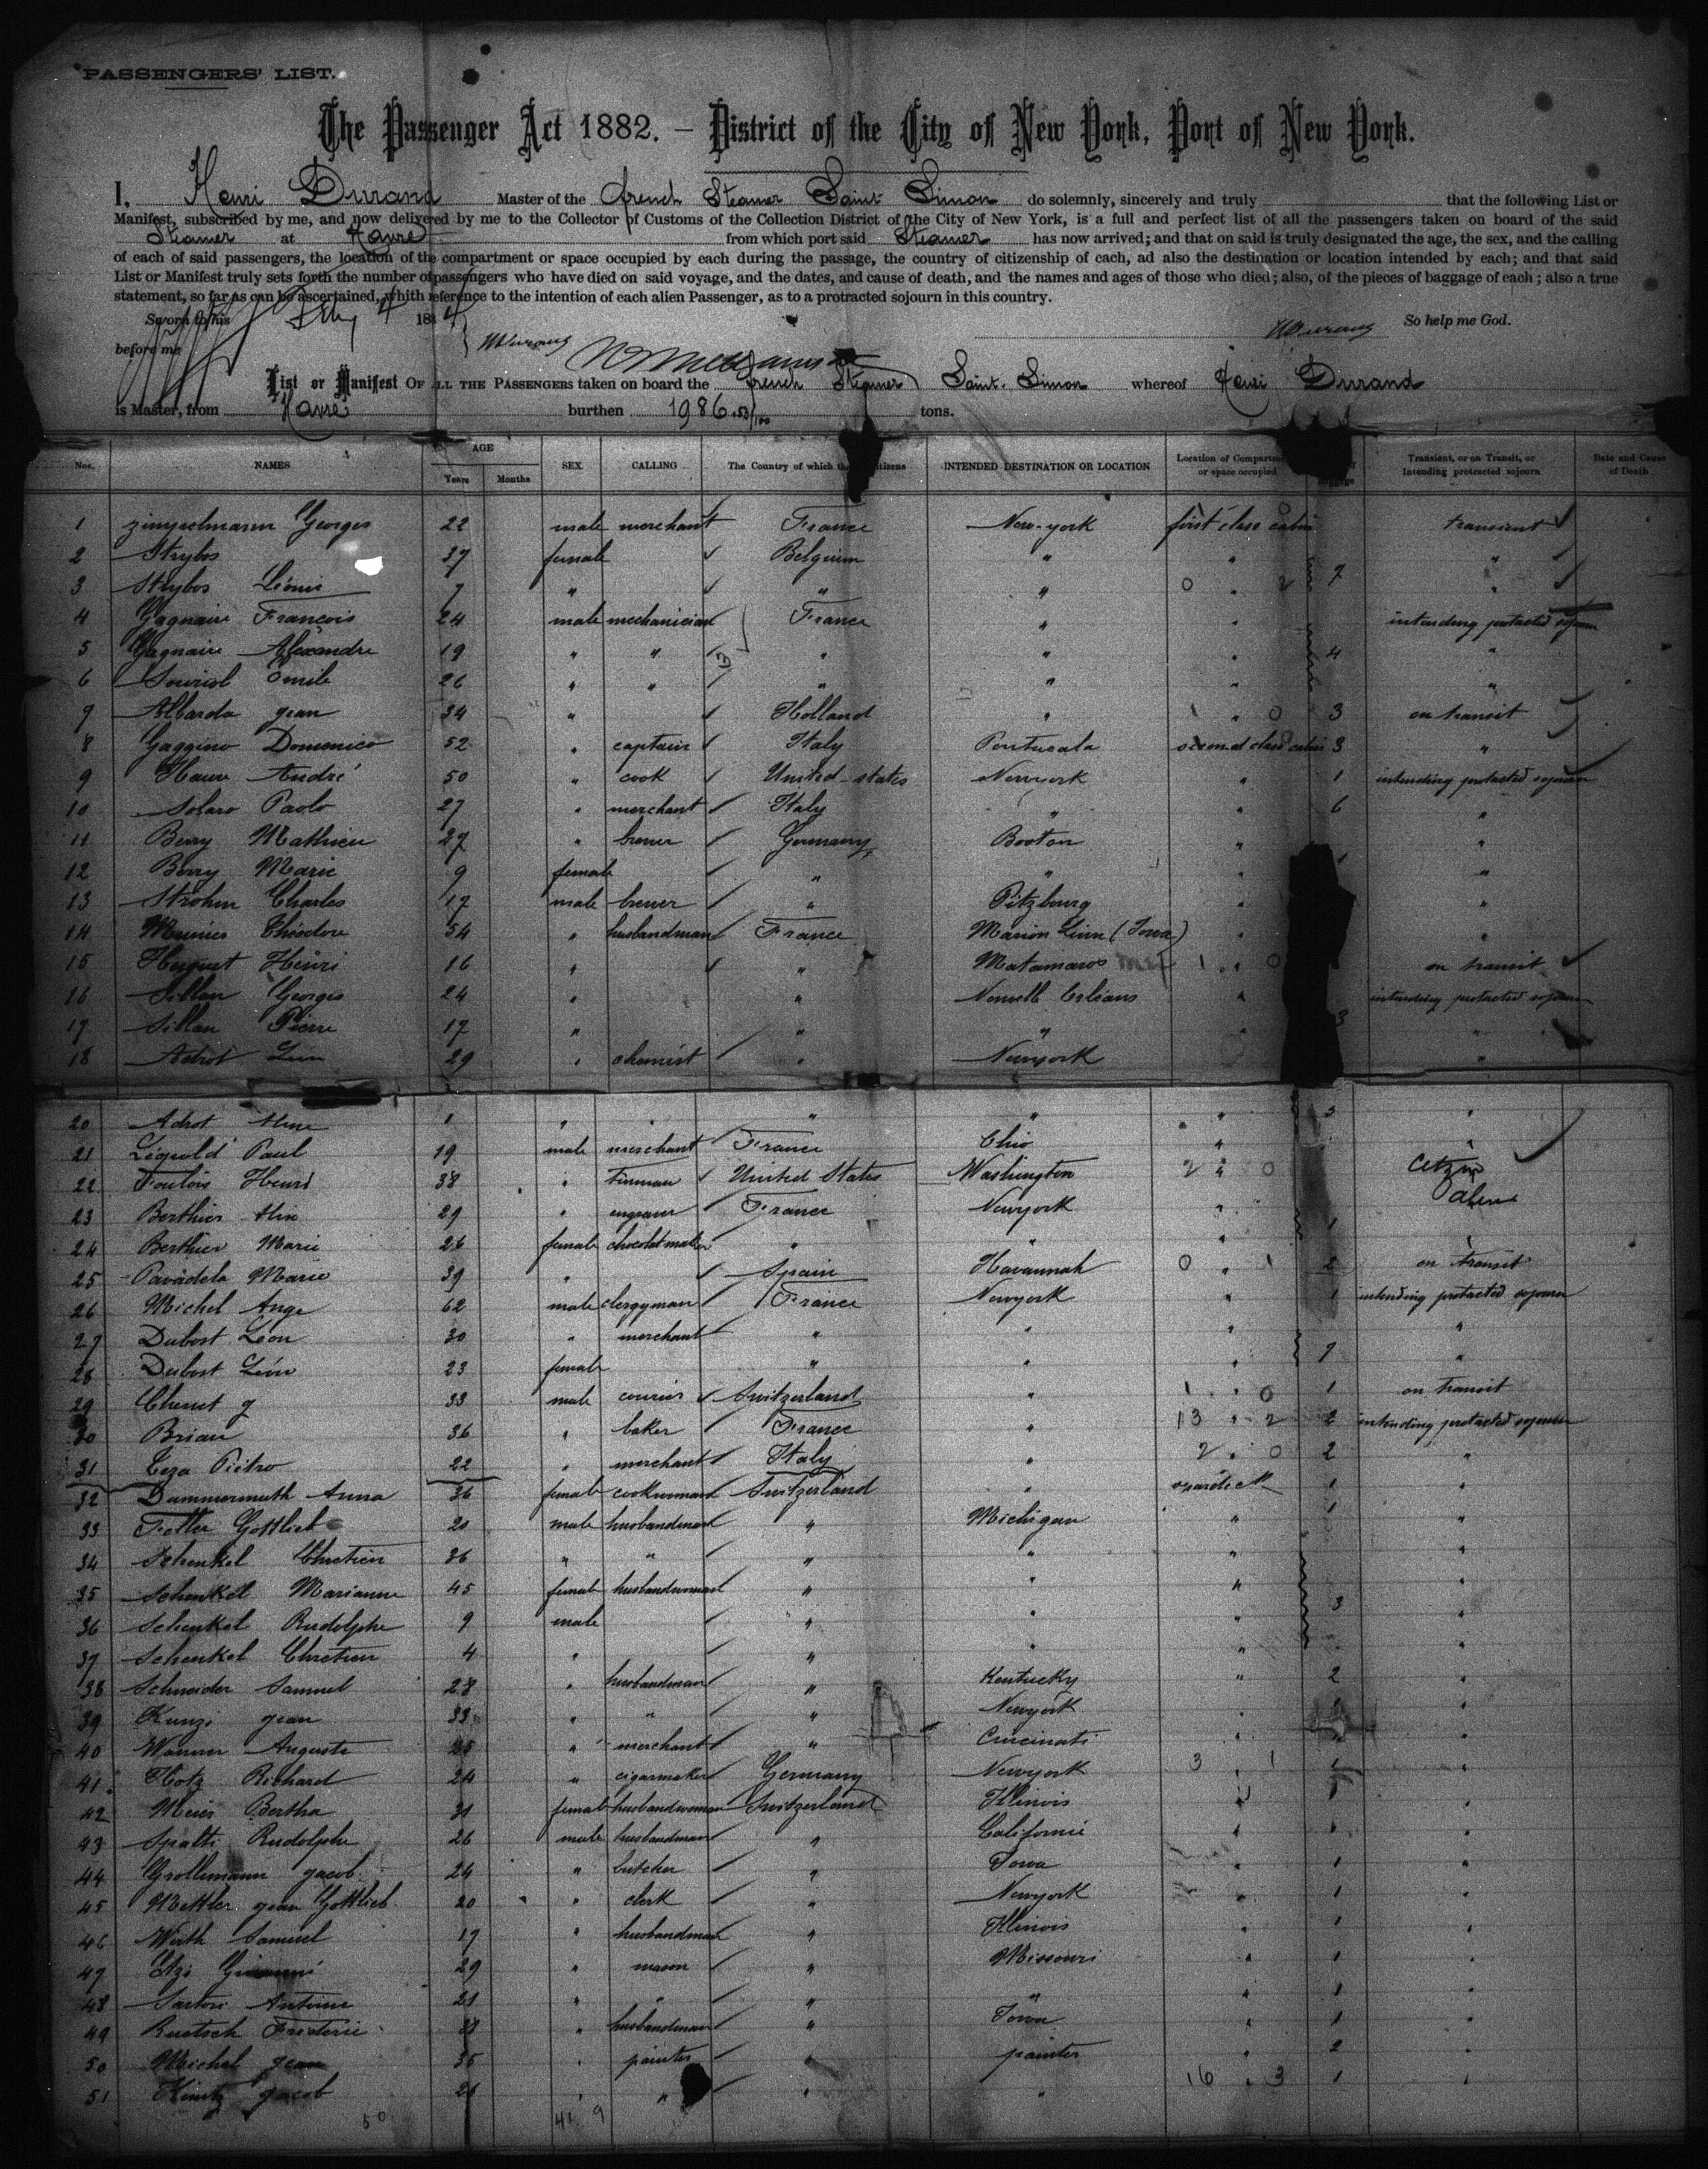 PASSENGERS' LIST.
The Passenger Act 1882. – District of the City of New York, Port of New York.
I, Henri Durand Master of the french Steamer Saint Simon do solemnly, sincerely and truly that the following List or
Manifest, subscribed by me, and now delivered by me to the Collector of Customs of the Collection District of the City of New York, is a full and perfect list of all the passengers taken on board of the said
Steamer at Havre from which port said Steamer has now arrived; and that on said is truly designated the age, the sex, and the calling
of each of said passengers, the location of the compartment or space occupied by each during the passage, the country of citizenship of each, ad also the destination or location intended by each; and that said
List or Manifest truly sets forth the number of passengers who have died on said voyage, and the dates, and cause of death, and the names and ages of those who died; also, of the pieces of baggage of each; also a true
statement, so far as can be ascertained, whith reference to the intention of each alien Passenger, as to a protracted sojourn in this country.
Sworn to this Feby 4 1884 HDurand HDurand So help me God.
before me
List or Manifest OF ALL THE PASSENGERS taken on board the french Steamer Saint. Simon whereof Henri Durand
is Master, from Havre burthen 1986.53/100 tons.
Nos. NAMES AGE Years Months SEX CALLING The Country of which they are citizens INTENDED DESTINATION OR LOCATION Location of Compartment or space occupied Transient, or on Transit, or Intending protracted sojourn Date and Cause of Death
1 Georges 22 male merchant France New-york first class cabin transient
2 Strybos 37 female Belgium " " "
3 Strybos Léonie 7 " " " 0 " 2 7 "
4 Gagnaire François 24 male mechanician France " " intending protacted sojourn
5 Gagnaire Alexandre 19 " " (3) " " " 4 "
6 Souriol Emile 26 " " " " " "
7 Albarda jean 34 " Holland " 1 " 0 3 on transit
8 Gaggino Domenico 52 " captain Italy second class cabin 3 "
9 Hawe André 50 " cook United-states Newyork " 1 intending protacted sojourn
10 Solaro Paolo 27 " merchant Italy " " 6 "
11 Berry Mathieu 27 " brewer Germany Boston " "
12 Berry Marie 9 female " " " 1 "
13 Strohm Charles 17 male brewer " Pitzbourg " "
14 Meunier Théodore 54 " husbandman France Marion Linn (Iowa) " "
15 Huguet Henri 16 " " Matamaros Mex 1 " 0 on transit
16 Sillan Georges 24 " " Nouvelle Orléans " intending protacted sojourn
17 Sillan Pierre 17 " " " " 3 "
18 Adrot Léon 29 " chemist " Newyork "
20 Adrot 1 " " " " " 3 "
21 Léopold Paul 19 male merchant France Ohio " "
22 Foulois Henri 38 " United States Washington 2 " 0 Citzn
23 Berthier 29 " engraver France Newyork " alien
24 Berthier Marie 26 female chocolat maker " " " 1 "
25 Pavadela Marie 39 " Spain Havannah 0 " 1 2 on transit
26 Michel Ange 62 male clergyman France Newyork " 1 intending protacted sojourn
27 Dubost Léon 30 " merchant " " " "
28 Dubost Léon 23 female " " " 7 "
29 Chenet g 33 male courier Switzerland " 1 " 0 1 on transit
30 Brian 36 " baker France " 13 " 2 2 intending protacted sojourn
31 Ceza Pietro 22 " merchant Italy " 2 " 0 2 "
32 Dummermuth Anna 36 female cookwoman Switzerland " 1 "
33 Fetter Gottlieb 20 male husbandman " Michigan " 1 "
34 Schenkel Chretien 36 " " " " " "
35 Schenkel Marianne 45 female husbandwoman " " " "
36 Schenkel Rudolphe 9 male " " " 3 "
37 Schenkel Chretien 4 " " " " "
38 Schneider Samuel 28 " husbandman " Kentucky " 2 "
39 Kunzi jean 33 " " " Newyork " "
40 Wanner Auguste 25 " merchant " Cincinati "
41 Hotz Richard 24 " cigarmaker Germany Newyork 3 " 1 1 "
42 Meier Bertha 31 female husbandwoman Switzerland Illinois " 1 "
43 Spalti Rudolphe 26 male husbandman " Californie " 1 "
44 Grollimann jacob 24 " butcher " Iowa " 1 "
45 Mettler jean Gottlieb 20 " clerk " Newyork " 1 "
46 Wirth Samuel 17 " husbandman " Illinois " 1 "
47 29 " mason " Missouri " 1 "
48 Sartori Antoine 21 " " " " " 1 "
49 Ruetsch Frederic 38 " husbandman " Iowa " 1 "
50 Michel jean 35 " painter " painter " 2 "
51 Kuntz jacob 26 " " " " 16 " 3 1 "
50 41 9